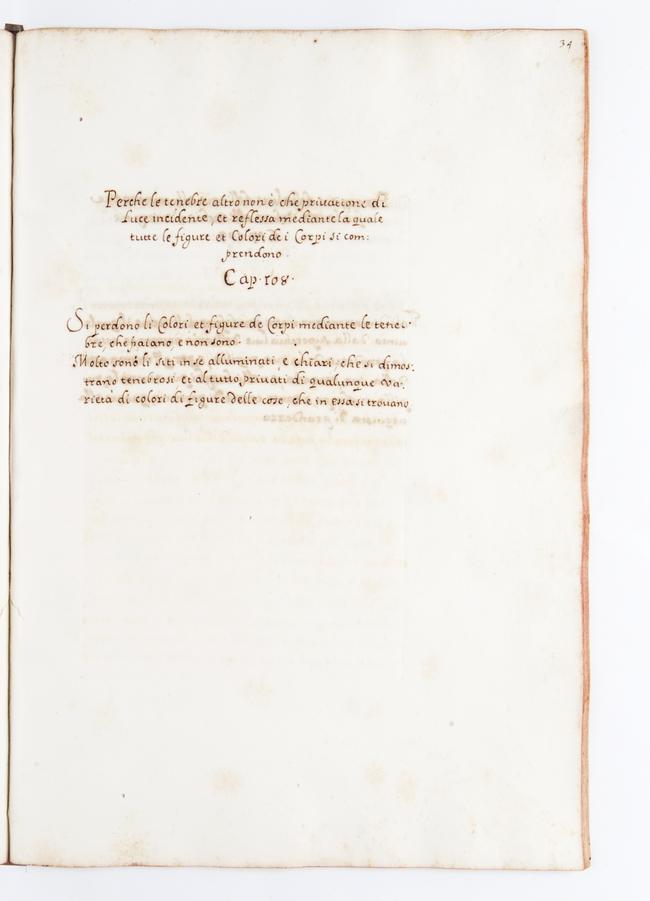 34
Perche le tenebre altro non è che privatione di
Luce incidente, et reflessa mediante la quale
tutte le figure et Colori de i Corpi si com:
prendono.
Cap. 108.
Si perdono li Colori et figure de Corpi mediante le tene:
bre, che paiano, e non sono.
Molto sono li siti in se alluminati, e chiari, che si dimos:
trano tenebrosi et al tutto privati di qualunque va:
rietà di colori di figure Delle cose, che in essa si trovano